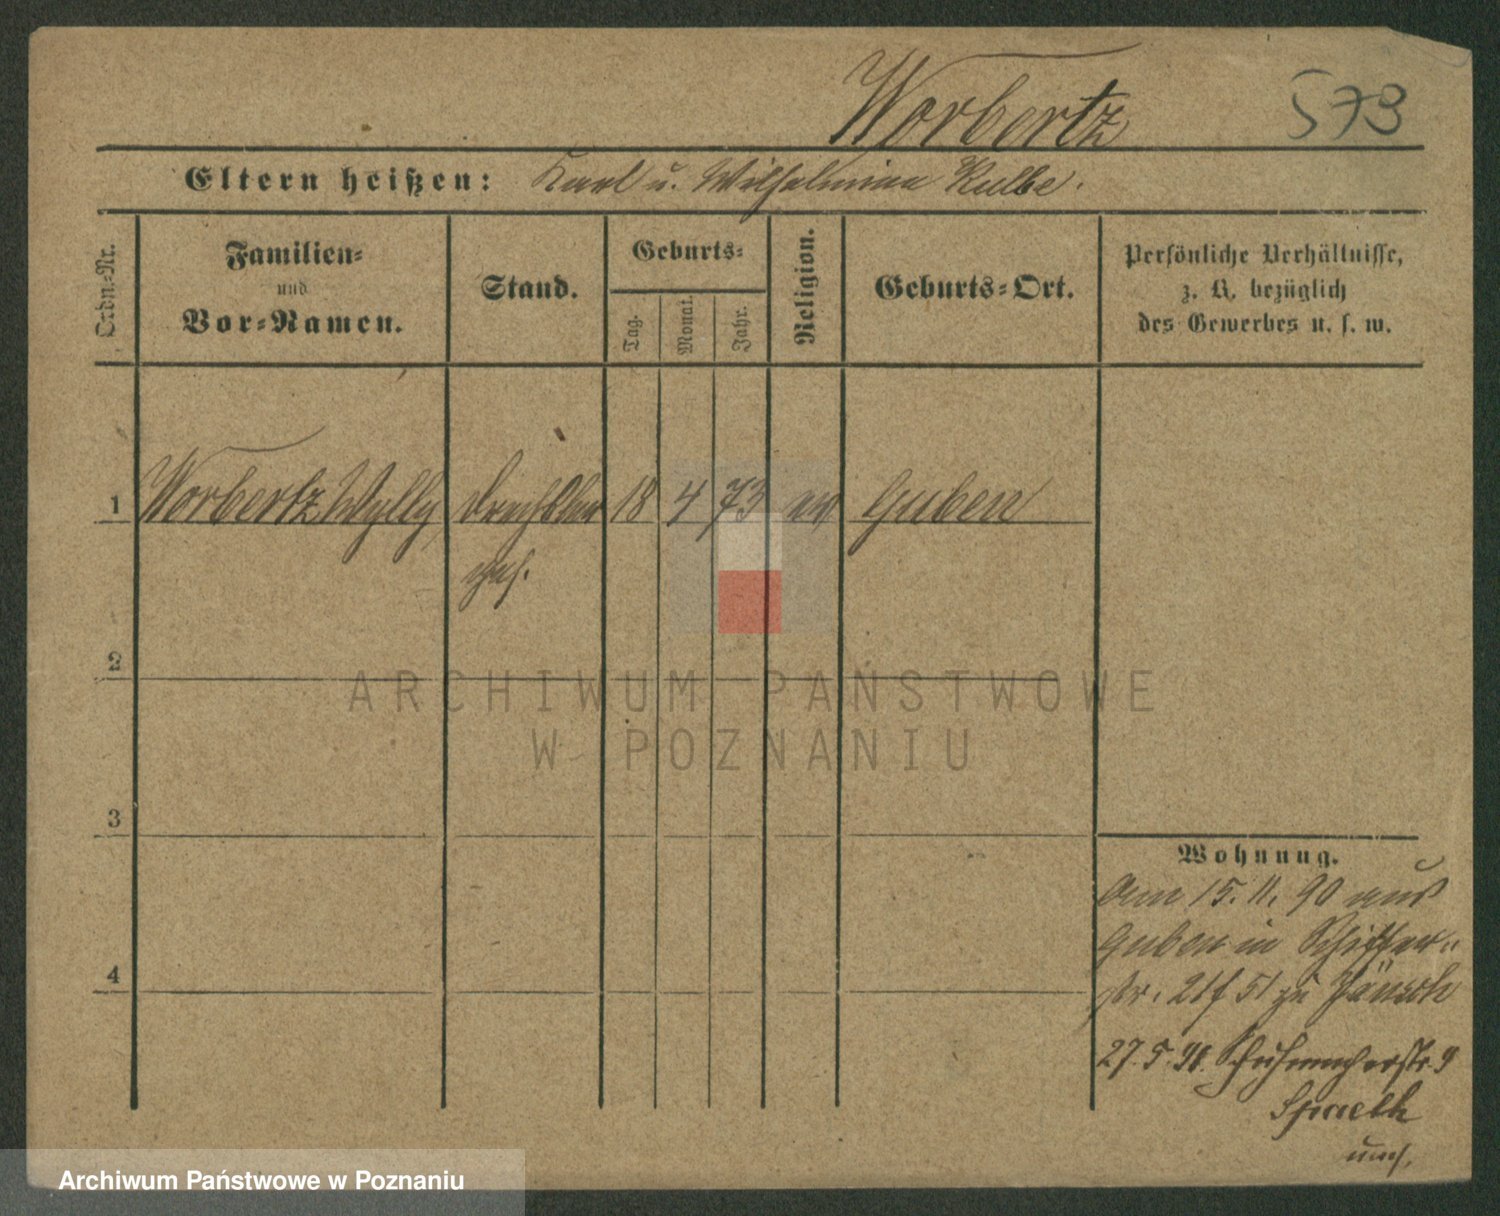 Worbertz
573
Eltern heißen: Karl u. Wilhelmine Kulbe.
Ordn=Nr.
Familien=
und
Vor=Namen.
Stand.
Geburts=
Tag.
Monat.
Jahr.
Religion.
Geburts=Ort.
Persönliche Verhältnisse,
z. B. bezüglich
des Gewerbes u. s. w.
1 Worbertz, Wylly Drechsler 18 4 73 ev Guben
2
ARCHIWUM PAŃSTWOWE
W POZNANIU
3
4
Wohnung.
Am 15. 11. 90 aus
Guben in Schiffer=
str. 21 51 zu
27. 5. 91. Schuhmacherstr. 9
Spaeth
Archiwum Państwowe w Poznaniu